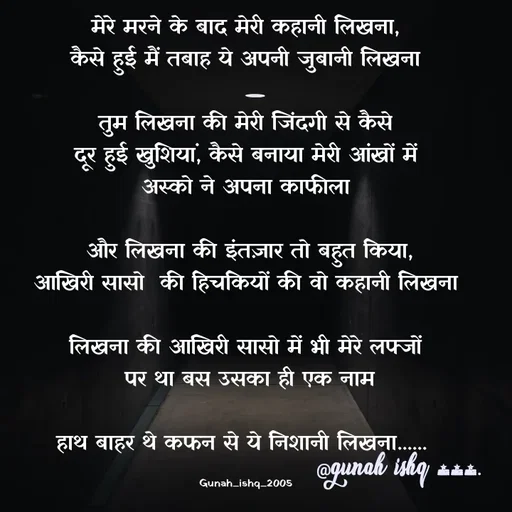 मेरे मरने के बाद मेरी कहानी लिखना,
कैसे हुई मैं तबाह ये अपनी जुबानी लिखना
तुम लिखना की मेरी जिंदगी से कैसे
दूर हुई खुशियां, कैसे बनाया मेरी आंखों में
अस्को ने अपना काफीला
और लिखना की इंतज़ार तो बहुत किया,
आखिरी सासो की हिचकियों की वो कहानी लिखना
लिखना की आखिरी सासो में भी मेरे लफ्जों
पर था बस उसका ही एक नाम
हाथ बाहर थे कफन से ये निशानी लिखना......
@gunah ishq
Gunah_ishq_2005